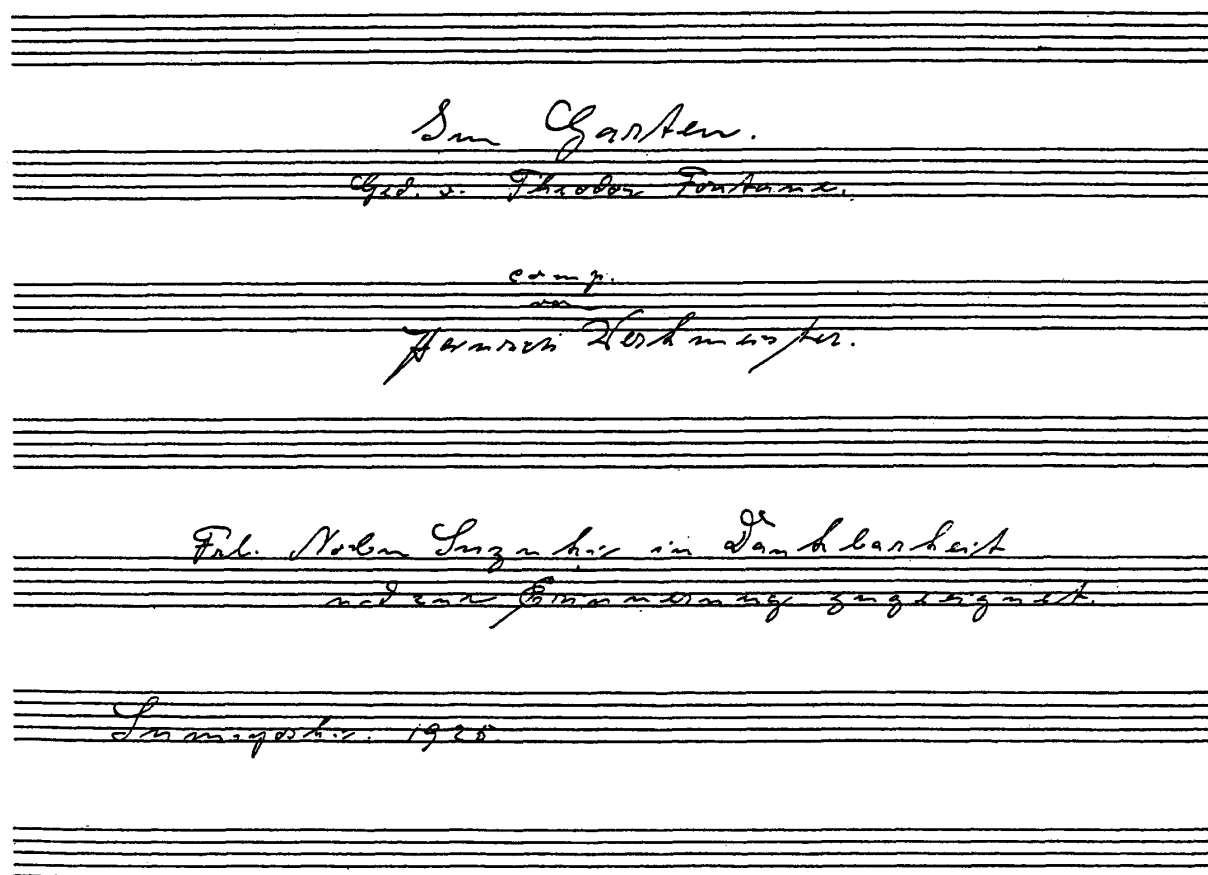 Im Garten.
Ged. v. Theodor Fontane.
comp.
von
Heinrich Werkmeister.
Frl. Nobu Suzuki in Dankbarkeit
und zur Erinnerung zugeeignet.
Sumiyoshi. 1925.